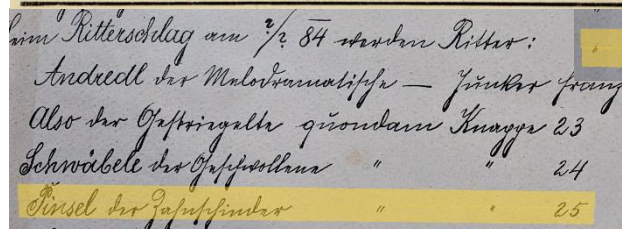 beim Ritterschlag am ?/? 84 werden Ritter:
Andredl der Melodramatische — Junker Franz
Also der Gestriegelte quondam Knappe 23
Schwäbele der Geschwollene " " 24
Pinsel der Zahnschinder " " 25